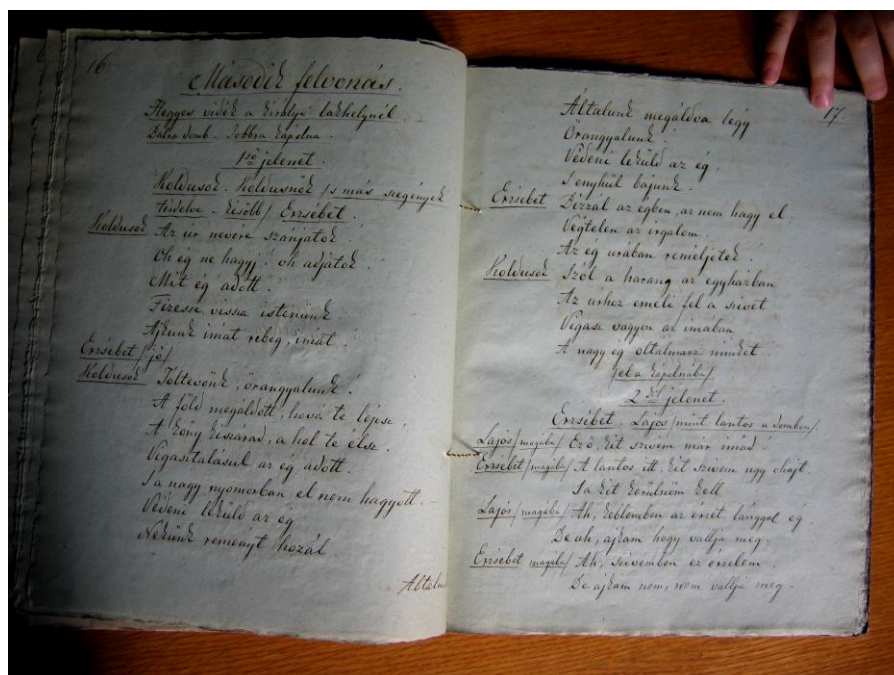 16
Második felvonás.
Hegyes vidék a királyi lakhelynél. –
Balra domb. Jobbra kápolna.
1ső jelenet.
Koldusok. Koldusnők /s más szegények
térdelve – később/ Erzsébet.
Koldusok Az úr nevére szánjatok!
Oh ég ne hagyj! oh adjatok!
Mit ég adott.
Fizesse vissza istenünk
Ajkunk imát rebeg, imát.
Erzsébet /jő/
Koldusok Jóltevőnk, őrangyalunk!
A föld megáldott, hová te lépsz,
A köny kiszárad, a hol te élsz.
Vigasztalásul az ég adott.
S a nagy nyomorban el nem hagyott. –
Védeni leküld az ég
Nekünk reményt hozál
Által
17
Általunk megáldva légy
Őrangyalunk!
Védeni leküld az ég,
S enyhül bajunk.
Erzsébet Bizzál az égben, az nem hagy el.
Végtelen az irgalom.
Az ég urában reméljetek!
Koldusok Szól a harang az egyházban
Az úrhoz emeli fel a szivet
Vigasz vagyon az imában
A nagy ég oltalmazz mindet.
/el a kápolnába/
2ik jelenet.
Erzsébet. Lajos /mint lantos a dombon/.
Lajos /magába/ Ez ő, kit szivem már imád!
Erzsébet /magába/ A lantos itt, kit szivem ugy óhajt.
S a kit kerülnöm kell
Lajos /magába/ Ah, keblemben az érzet lánggal ég.
De ah, ajkam hogy vallja meg.
Erzsébet magába/ Ah, szivemben ez érzelem.
De ajkam nem, nem vallja meg.